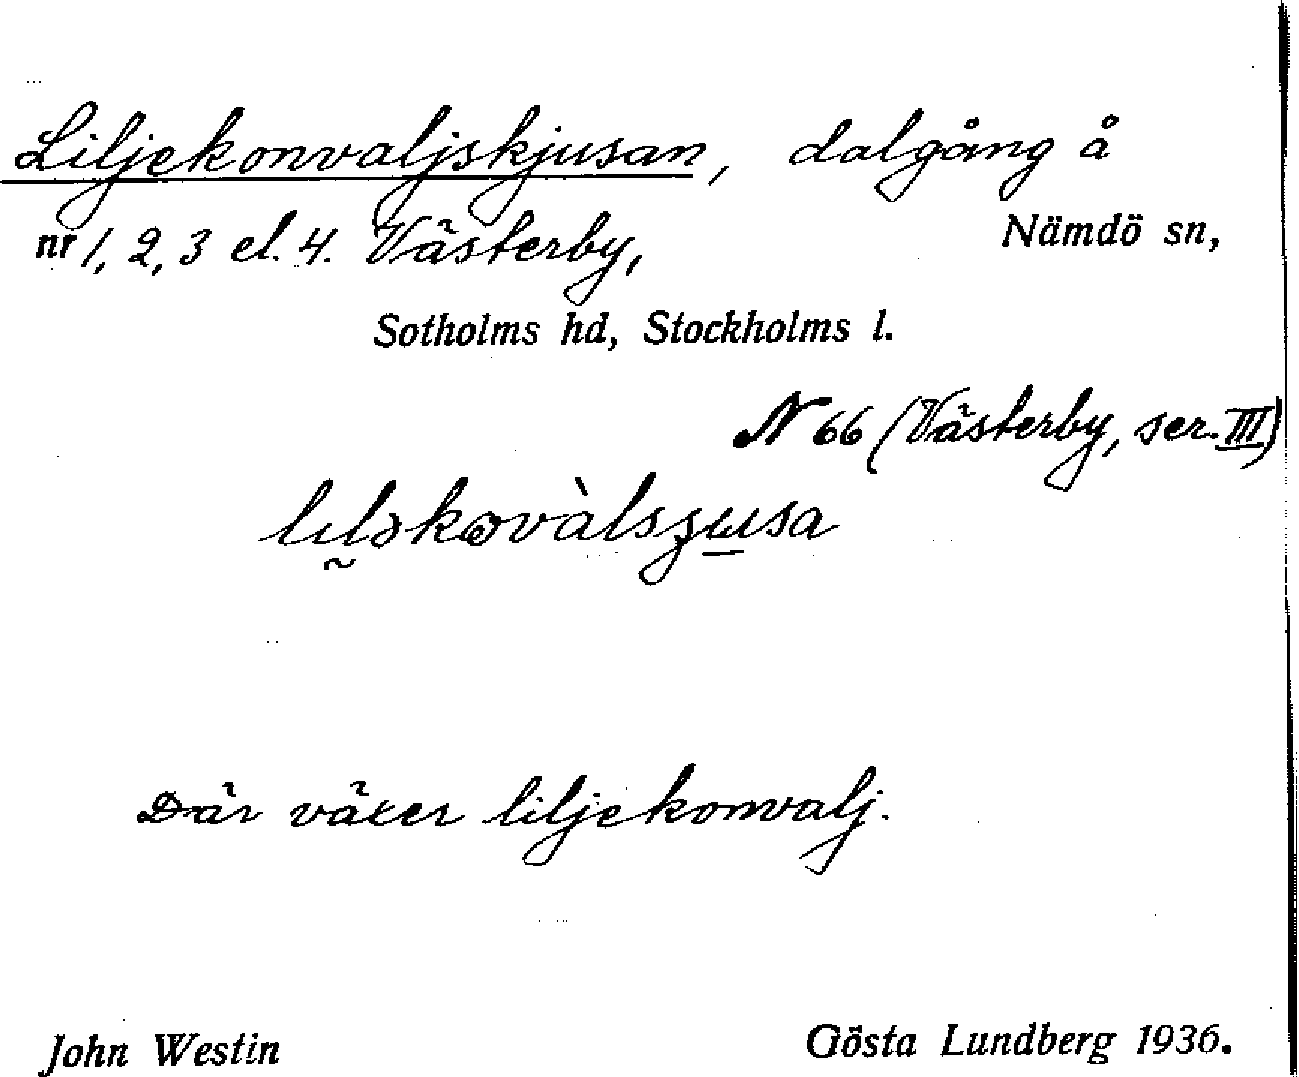 Liljekonvaljskjusan, dalgång å
nr 1, 2, 3 el. 4. Västerby, Nämdö sn,
Sotholms hd, Stockholms l.
N 66 (Västerby, ser. III)
Där växer liljekonvalj.
John Westin Gösta Lundberg 1936.